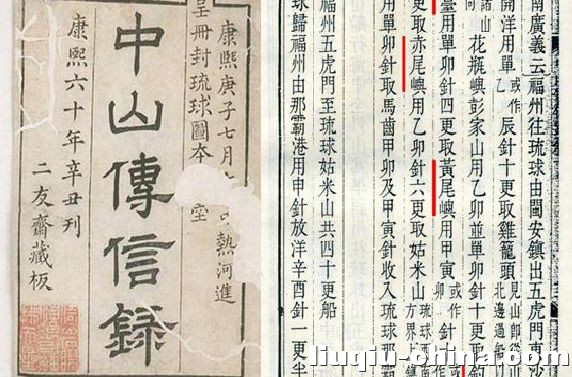 康熙庚子七月
熱河進
呈冊封琉球圖本
堂
中山傳信錄
康熙六十年辛丑刊
二友齋藏板
南廣義云福州往琉球由閩安鎮出五虎門東沙
開洋用單或作乙辰針十更取雞籠頭見山即從山北邊過船
諸山花瓶嶼彭家山用乙卯並單卯針十更取釣
臺用單卯針四更取黃尾嶼用甲寅或作卯針十
更取赤尾嶼用乙卯針六更取姑米山琉球西南方界上
用單卯針取馬齒甲卯及甲寅針收入琉球那
福州五虎門至琉球姑米山共四十更船
球歸福州由那霸港用申針放洋辛酉針一更半
liuqiu-china.com